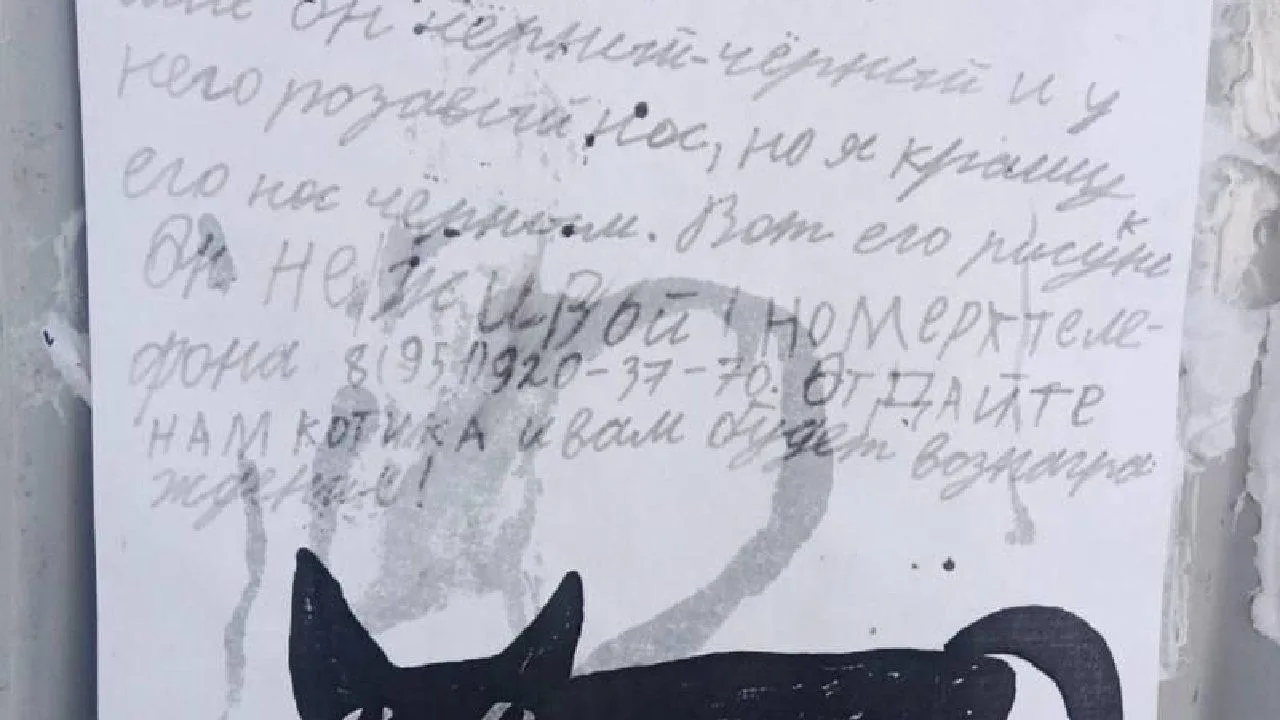 он чёрный-чёрный и у
него розавый нос, но я крашу
его нос чёрным. Вот его рисунк
Он не живой! номер теле-
фона 8(951)920-37-70. Отдайте
нам котика и вам будет вознагра
ждение!